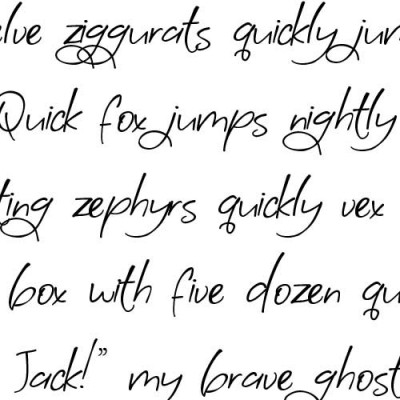 elve ziggurats quickly jum
Quick fox jumps nightly
ting zephyrs quickly vex
box with five dozen qu
Jack!” my brave ghost